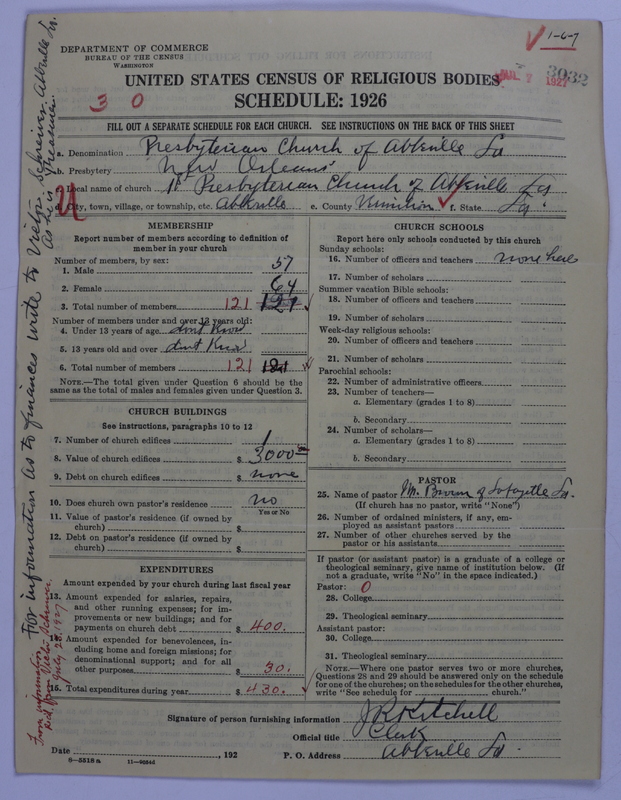 1-6-7
DEPARTMENT OF COMMERCE
BUREAU OF THE CENSUS
WASHINGTON
JUL 7 1927 3032
UNITED STATES CENSUS OF RELIGIOUS BODIES
3 0
SCHEDULE: 1926
FILL OUT A SEPARATE SCHEDULE FOR EACH CHURCH. SEE INSTRUCTIONS ON THE BACK OF THIS SHEET
a. Denomination Presbyterian Church of Abbeville La
b. Presbytery New Orleans
c. Local name of church 1st Presbyterian Church of Abbeville La
d. City, town, village, or township, etc. Abbeville e. County Vermilion f. State La.
MEMBERSHIP
Report number of members according to definition of member in your church
Number of members, by sex:
1. Male 57
2. Female 64
3. Total number of members 121 121
Number of members under and over 13 years old:
4. Under 13 years of age dont Know
5. 13 years old and over dont Know
6. Total number of members 121 121
NOTE.—The total given under Question 6 should be the same as the total of males and females given under Question 3.
CHURCH BUILDINGS
See instructions, paragraphs 10 to 12
7. Number of church edifices 1
8. Value of church edifices $ 3000
9. Debt on church edifices $ none
10. Does church own pastor's residence no
Yes or No
11. Value of pastor's residence (if owned by church) $
12. Debt on pastor's residence (if owned by church) $
EXPENDITURES
Amount expended by your church during last fiscal year
13. Amount expended for salaries, repairs, and other running expenses; for improvements or new buildings; and for payments on church debt $ 400.
14. Amount expended for benevolences, including home and foreign missions; for denominational support; and for all other purposes $ 30.
15. Total expenditures during year $ 430.
CHURCH SCHOOLS
Report here only schools conducted by this church
Sunday schools:
16. Number of officers and teachers none here
17. Number of scholars
Summer vacation Bible schools:
18. Number of officers and teachers
19. Number of scholars
Week-day religious schools:
20. Number of officers and teachers
21. Number of scholars
Parochial schools:
22. Number of administrative officers
23. Number of teachers—
a. Elementary (grades 1 to 8)
b. Secondary
24. Number of scholars—
a. Elementary (grades 1 to 8)
b. Secondary
PASTOR
25. Name of pastor Mr. Brown of Lafayette La.
(If church has no pastor, write "None")
26. Number of ordained ministers, if any, employed as assistant pastors
27. Number of other churches served by the pastor or his assistants
If pastor (or assistant pastor) is a graduate of a college or theological seminary, give name of institution below. (If not a graduate, write "No" in the space indicated.)
Pastor: 0
28. College
29. Theological seminary
Assistant pastor:
30. College
31. Theological seminary
NOTE.—Where one pastor serves two or more churches, Questions 28 and 29 should be answered only on the schedule for one of the churches; on the schedules for the other churches, write "See schedule for ______ church."
Signature of person furnishing information J R Kitchell
Official title Clerk
Date , 192 P. O. Address Abbeville La.
8-5518 a
For information as to finances write to Victor Schriever, Abbeville La.
As he is Treasurer.
From information
rec'd from Victor Schriever
July 28, 1927